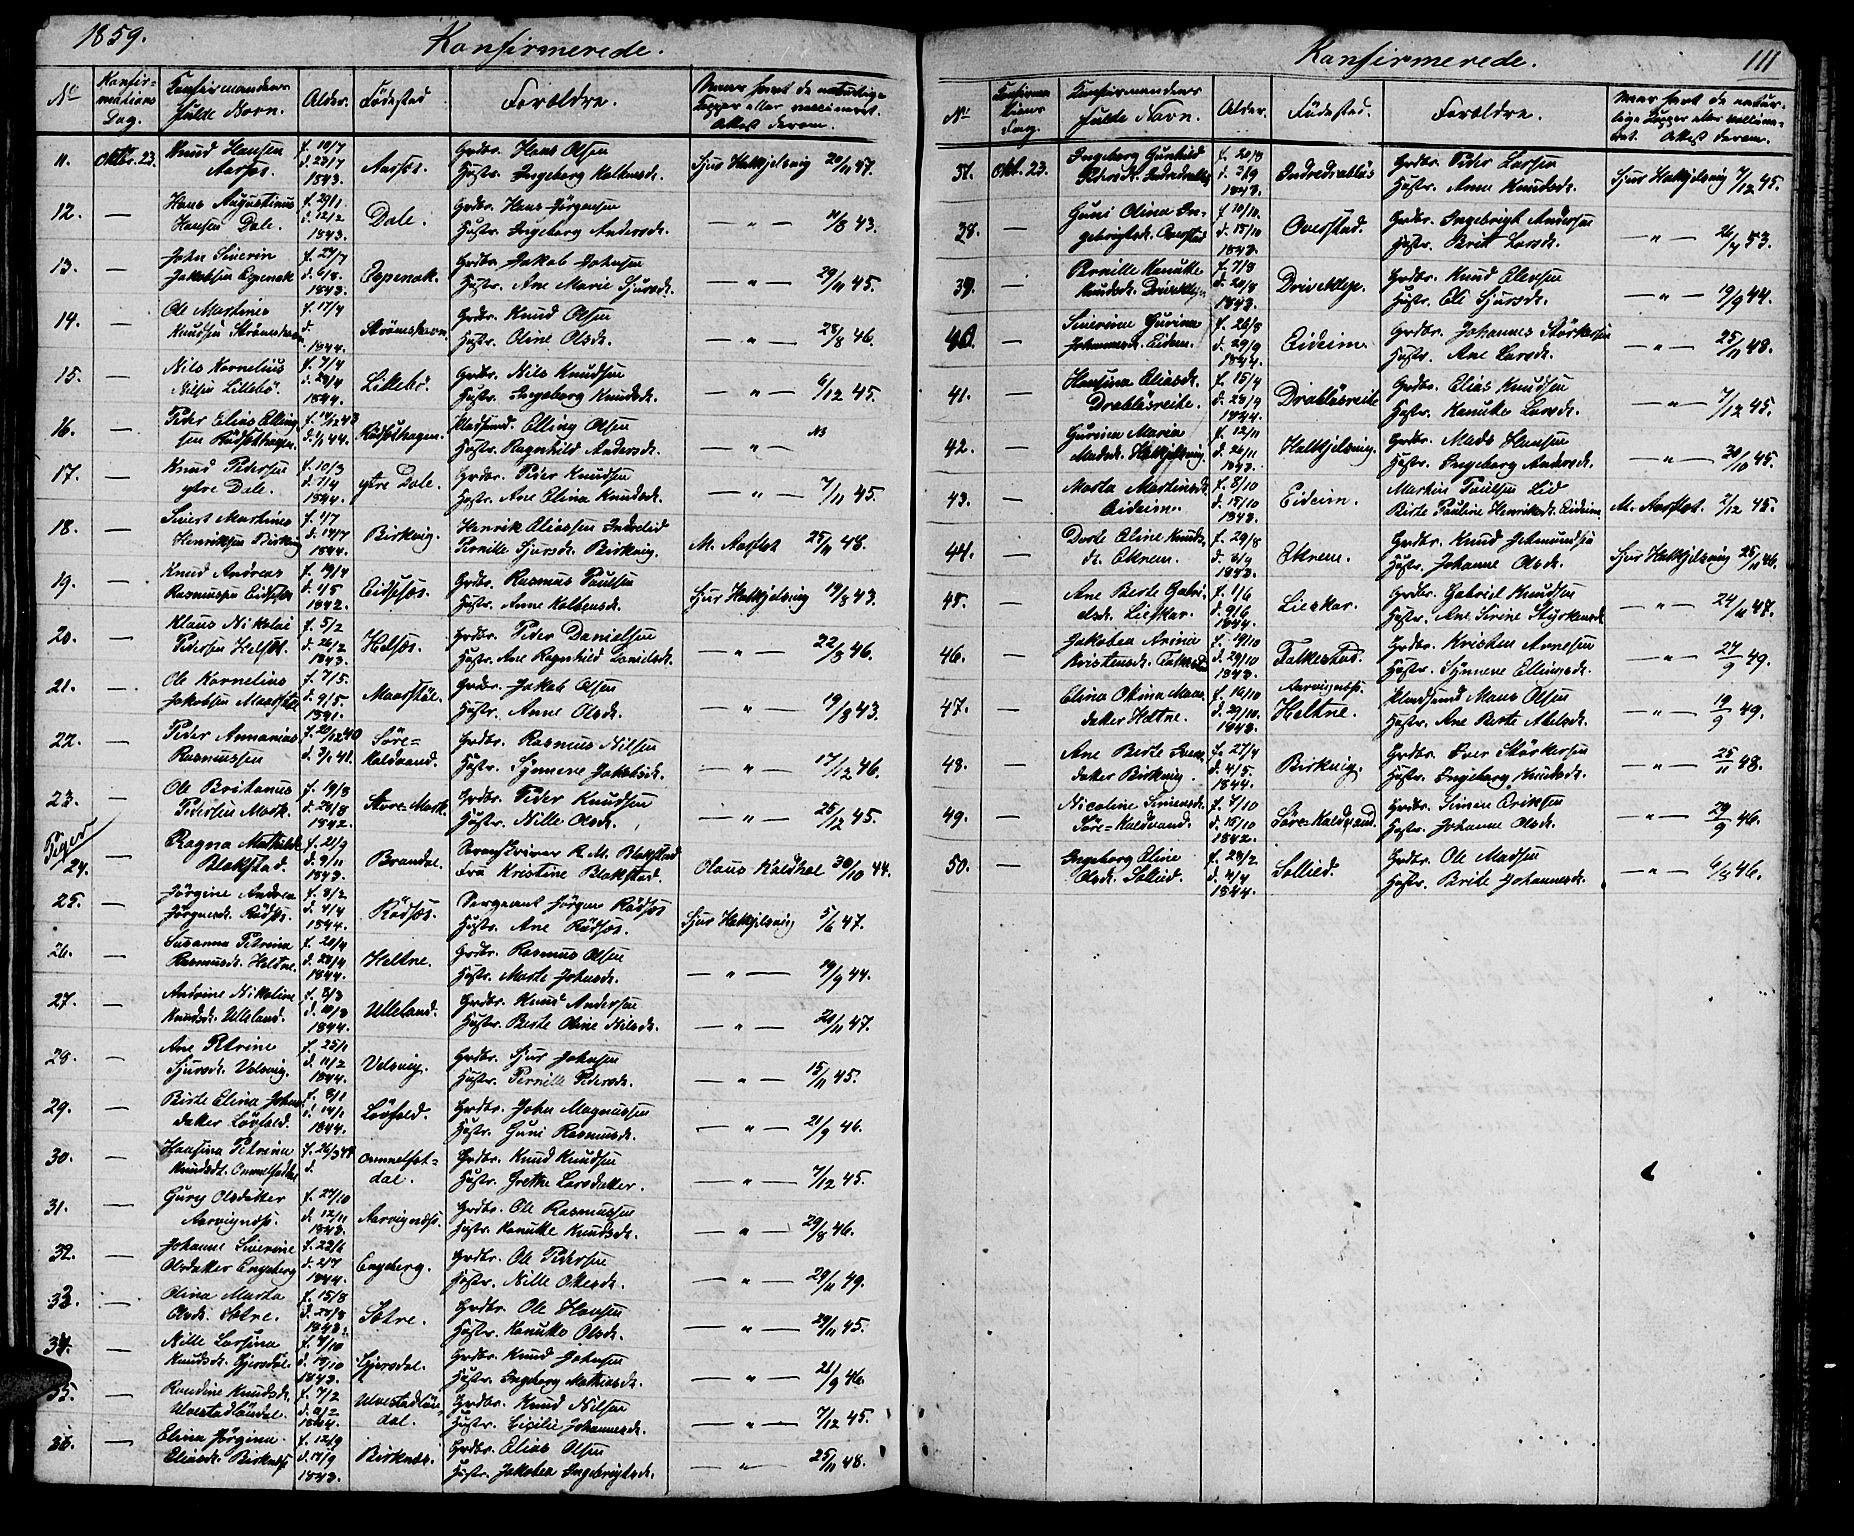 1859.
Konfirmerede.
No
Konfir-
mations
Dag.
Konfirmandens
fulde Navn.
Alder.
Födested
Forældre.
11.
Oktbr. 23.
Knud Hansen
Aasfos.
f. 10/7
d. 23/7
1843.
Grdbr. Hans Olsen
Hustr. Ingeborg
Sjur Hatkjelsvig 20/11 47.
12.
—
Hans Augustinus
Hansen Dale.
f. 29/1
d. 12/2
1843.
Dale.
Grdbr. Hans Jörgensen
Hustr. Ingeborg Andersdr.
— " — 11/8 43.
13.
—
John Siverin
Jakobsen Espenak
f. 27/7
d. 6/8
1843.
Espenak.
Grdbr. Jakob Johnsen
Hustr. Ane Marie Sjursdr.
— " — 29/11 45.
14.
—
Ole Martinus
Knudsen
f. 17/4
d.
1844.
Grdbr. Knud Olsen
Hustr. Oline Olsdr.
— " — 28/8 46.
15.
—
Nils Kornelius
Nilsen Lillebö.
f. 7/4
d. 28/4
1844.
Lillebö.
Grdbr. Nils Knudsen
Hustr. Ingeborg Knudsdr.
— " — 6/12 45.
16.
—
Peder Elias Elling-
sen
Rödsethagen.
Pladsmd. Elling Olsen
Hustr. Ragnhild Andersdr.
— " —
17.
—
Knud Pedersen
ytre Dale.
f. 10/3
d. 7/4
1844.
ytre Dale.
Grdbr. Peder Knudsen
Hustr. Ane Elina Knudsdr.
— " — 7/11 45.
18.
—
Sivert Martinus
Henriksen Birkvig
f. 1/7
d. 14/7
1844.
Birkvig.
Henrik Eliassen Indrelid
Pernille Sjursdr. Birkvig.
M. Aasflot 25/11 48.
19.
—
Knud Andreas
Rasmussen
f. 19/4
d. 1/5
1842.
Grdbr. Rasmus Paulsen
Hustr. Anne
Sjur Hatkjelsvig 19/8 43.
20.
—
Klaus Nikolai
Pedersen Helsös.
f. 5/2
d. 26/2
1843.
Helsös.
Grdbr. Peder Danielsen
Hustr. Ane Ragnhild Danielsdr.
— " — 22/8 46.
21.
—
Ole Kornelius
Jakobsen Maastöl
f. 7/5.
d. 9/5.
1841.
Maastöl.
Grdbr. Jakob Olsen
Hustr. Anne Olsdr.
— " — 19/8 43.
22.
—
Peder Annanias
Rasmussen
Söre-
Kaldvand.
Grdbr. Rasmus Nilsen
Hustr. Synneve Jakobsdr.
— " — 17/12 46.
23.
—
Ole Britanus
Pedersen Mork.
f. 19/8
d. 28/8
1842.
Store-Mork.
Grdbr. Peder Knudsen
Hustr. Nille Olsdr.
— " — 25/12 45.
Piger
24.
—
Ragna Mathilde
Blakstad.
f. 21/9
d. 9/11
1843.
Brandal.
Sorenskriver R. M. Blakstad
Fru Kristine Blakstad.
Olaus Kaldhol 30/10 44.
25.
—
Jörgine Andrea
Jörgensdr. Rödsös.
f. 8/2
d. 4/4
1844.
Rödsös.
Sergeant Jörgen Rödsös
Hustr. Ane Rödsös.
Sjur Hatkjelsvig 5/6 47.
26.
—
Susanna Petrina
Rasmusdr. Heltne.
f. 20/4
d. 28/4
1844.
Heltne.
Grdbr. Rasmus Olsen
Hustr. Marte Johnsdr.
— " — 19/9 44.
27.
—
Andrine Nikoline
Knudsdr. Ulleland.
f. 8/3
d. 10/3
1844.
Ulleland.
Grdbr. Knud Andersen
Hustr. Berte Oline Nilsdr.
— " — 20/11 47.
28.
—
Ane Petrine
Sjursdr. Velsvig.
f. 25/1
d. 11/2
1844.
Velsvig.
Grdbr. Sjur Johnsen
Hustr. Pernille Pedersdr.
— " — 15/11 45.
29.
—
Berte Elina Johns-
datter Lövfald.
f. 8/1
d. 14/1
1844.
Lövfald.
Grdbr. John Magnussen
Hustr. Guni Rasmusdr.
— " — 21/9 46.
30.
—
Hansina Petrina
Knudsdt. Ommelsetdal
f. 26/3 44
d.
Ommelset-
dal.
Grdbr. Knud Knudsen
Hustr. Grethe Larsdatter.
— " — 7/12 45.
31.
—
Gury Olsdatter
Aarvignæs.
f. 27/10
d. 12/11
1843.
Aarvignæs.
Grdbr. Ole Rasmussen
Hustr. Kanutte Knudsdr.
" — 29/8 46.
32.
—
Johanne Siverine
Olsdatter Engeberg
f. 23/6
d. 2/7
1844.
Engeberg.
Grdbr. Ole Pedersen
Hustr. Nille Ottesdr.
— " — 29/11 49.
33.
—
Olina Marta
Olsdr. Sætre.
f. 15/8
d. 20/8
1843.
Sætre.
Grdbr. Ole Hansen
Hustr. Kanutte Olsdr.
— " — 29/11 45.
34.
—
Nille Larsina
Knudsdr. Gjersdal.
f. 4/10
d. 19/10
1843.
Gjersdal.
Grdbr. Knud Johnsen
Hustr. Ingeborg Mathiasdr.
— " — 21/9 46.
35.
—
Randine Knudsdr.
Ulvestadlöndal.
f. 7/2
d. 11/2
1844.
Ulvestadlön-
dal.
Grdbr. Knud Nilsen
Hustr. Cecilie Johannesdr.
— " — 7/12 45.
36.
—
Elina Jörgina
Eliasdr. Birknæs
f. 12/9
d. 17/9
1843.
Birknæs.
Grdbr. Elias Olsen
Hustr. Jakobea Ingebrigtsdr.
— " — 25/11 48.
Konfirmerede.
111
No
Konfirma-
tions
Dag.
Konfirmandens
fulde Navn.
Alder.
Födestad.
Forældre.
37.
Okt. 23.
Ingeborg Gunhild
Pedersdr. Indredrabløs
f. 20/8
d. 3/9
1843.
Indredrabløs
Grdbr. Peder Larsen
Hustr. Anne Knudsdr.
Sjur Hatkjelsvig 7/12 45.
38.
—
Guni Olina In-
gebrigtsdr. Overstad
f. 10/10.
d. 15/10
1843.
Overstad.
Grdbr. Ingebrigt Andersen
Hustr. Brit Larsdr.
— " — 26/7 53.
39.
—
Pernille Kanutte
Knudsdr.
f. 7/8
d. 20/8
1843.
Grdbr. Knud Ellevsen
Hustr. Ole Sjursdr.
— " — 19/9 44.
40.
—
Siverine Gurina
Johannesdr. Eideim.
f. 26/8
d. 29/9
1844.
Eideim
Grdbr. Johannes Störkersen
Hustr. Ane Larsdr.
— " — 25/11 48.
41.
—
Hansina Eliasdr.
Drabløsreite.
f. 15/9
d. 28/9
1844.
Drabløsreite
Grdbr. Elias Knudsen
Hustr. Kanutte Larsdr.
— " — 7/12 45.
42.
—
Gurina Maria
Madsdr. Hatkjelsvig.
f. 12/11
d. 26/11
1843.
Hatkjelsvig.
Grdbr. Mads Hansen
Hustr. Ingeborg Andersdr.
— " — 30/10 45.
43.
—
Marta Martinusdr.
Eideim.
f. 8/10
d. 15/10
1843.
Eideim.
Martin Paulsen Lid
Berte Pauline Henriksdr. Eideim
M. Aasflot. 2/12 45.
44.
—
Dorte Oline Knuds-
dr. Ekrem.
f. 29/8
d. 3/9
1843.
Ekrem.
Grdbr. Knud Jetmundsen
Hustr. Johanne Olsdr.
Sjur Hatkjelsvig 25/11 46.
45.
—
Ane Berte Gabri-
elsdr. Lieskar.
f. 1/6
d. 9/6
1844.
Lieskar.
Grdbr. Gabriel Knudsen
Hustr. Ane Sirine Styrkersdr.
— " — 24/11 47.
46.
—
Jakobea Arina
Kristensdr. Falkestad
f. 19/10
d. 29/10
1843.
Falkestad.
Grdbr. Kristen Arnesen
Hustr. Synneve Ellingsdr.
— " — 27/9 49.
47.
—
Elina Okina Maas-
datter Heltne.
f. 16/10
d. 29/10.
1843.
Aarvignæs.
Heltne.
Pladsmd Maas Olsen
Hustr. Ane Berte Abelsdr.
— " — 19/9 49.
48.
—
Ane Berte Ivers-
datter Birkvig.
f. 27/4
d. 4/5.
1844.
Birkvig.
Grdbr. Iver Störkersen
Hustr. Ingeborg Knudsdr.
— " — 25/11 48.
49.
—
Nicoline Simensdr.
Söre-Kaldvand.
f. 7/10
d. 15/10
1842.
Söre-Kaldvand.
Grdbr. Simen Eriksen
Hustr. Johanne Olsdr.
— " — 29/9 46.
50.
—
Ingeborg Eline
Olsdr. Sollied.
f. 28/2
d. 4/4
1844.
Sollied.
Grdbr. Ole Madsen
Hustr. Brite Johannesdr.
— " — 6/8 46.